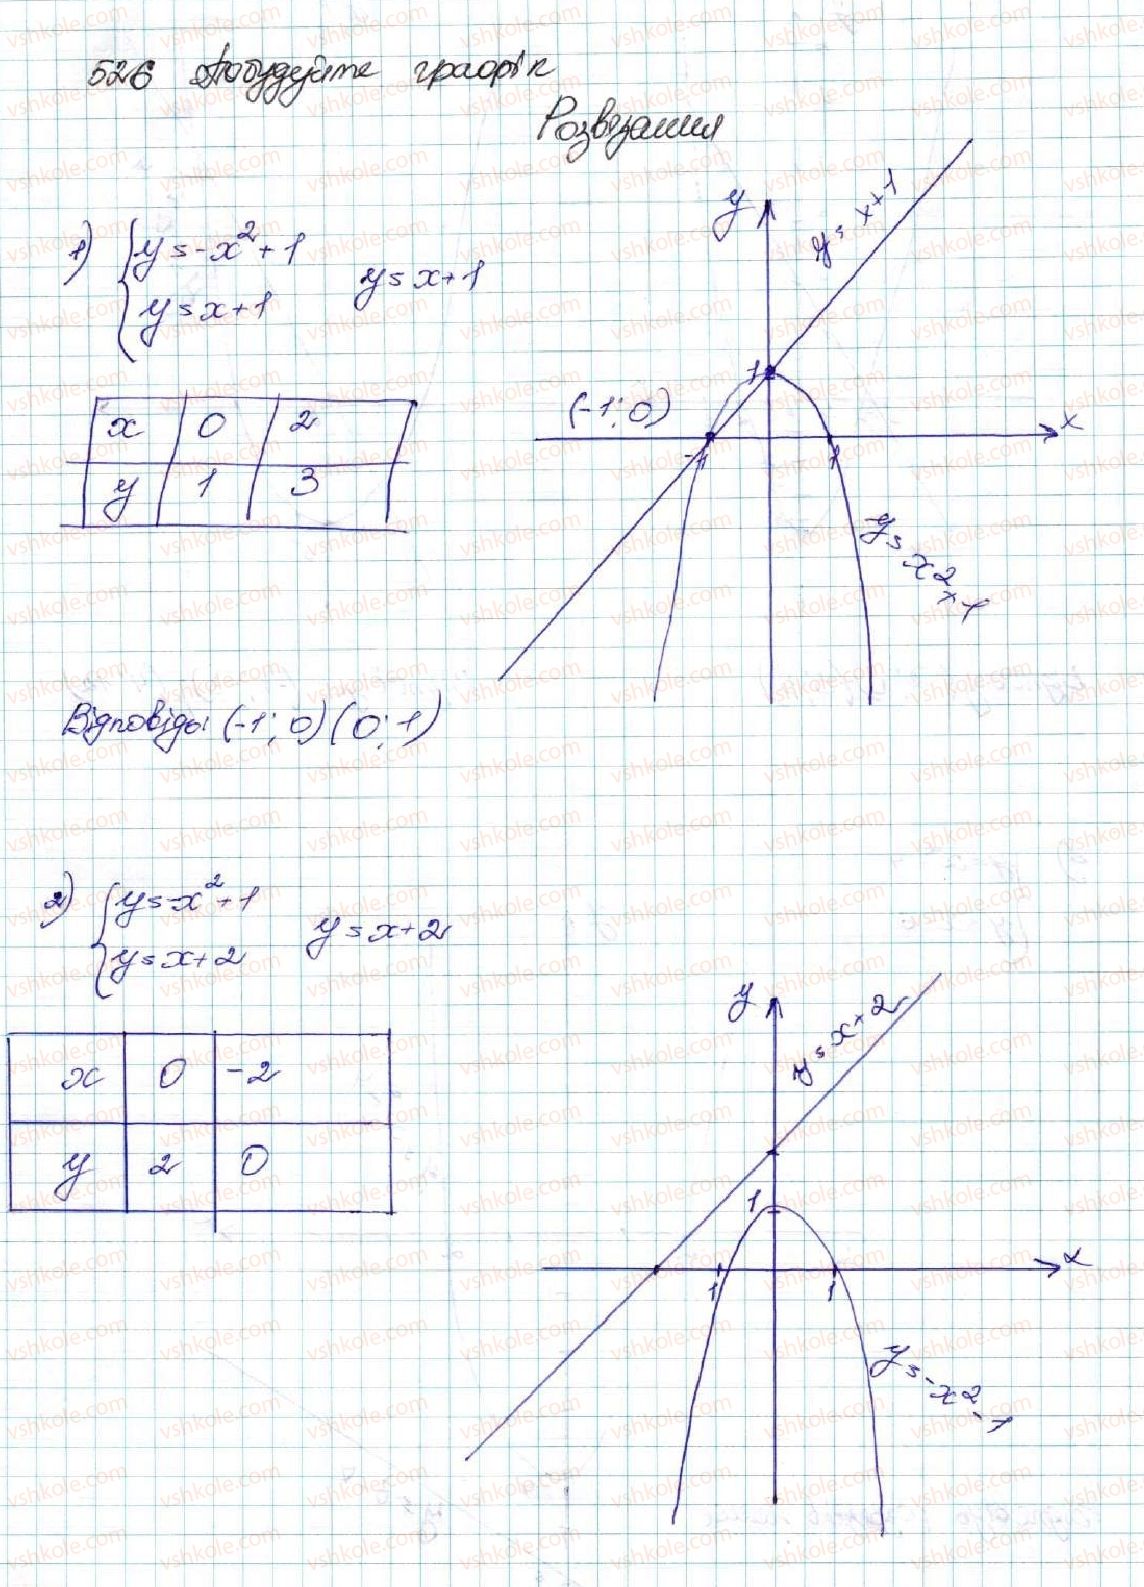 526 Побудуйте графік
Розвязання
1) { y = -x² + 1
y = x + 1
y = x + 1
x 0 2
y 1 3
y
y = x + 1
1
(-1; 0)
-1
1
x
y = x2 + 1
Відповідь: (-1; 0) (0; 1)
2) { y = -x² + 1
y = x + 2
y = x + 2
x 0 -2
y 2 0
y
y = x + 2
1
1
1
x
y = -x2 - 1
vshkole.com